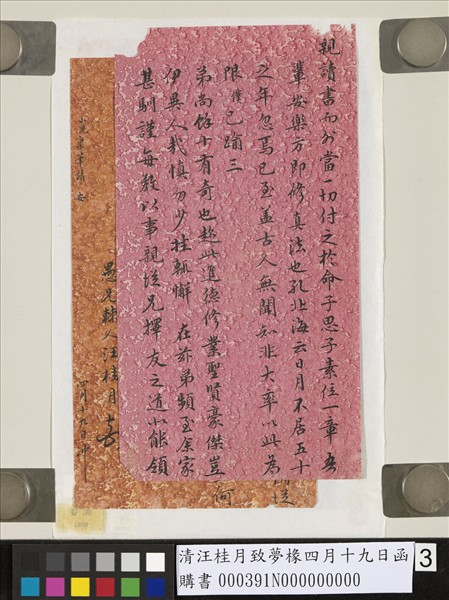 親讀書而外當一切付之於命子思子素位一章吾
輩安樂方即修真法也孔北海云日月不居五十
之年忽焉已至蓋古人無聞知非大率以此為
限僕已踰三
弟尚餘十有奇也趁此進德修業聖賢豪傑豈
伊異人哉慎勿少挂輒懈 在茲弟頻至余家
甚馴謹每教以事親從兄擇友之道亦能領
愚兄棘人汪桂月
四月十九日
何
清汪桂月致夢橡四月十九日函
購書 000391N000000000
3